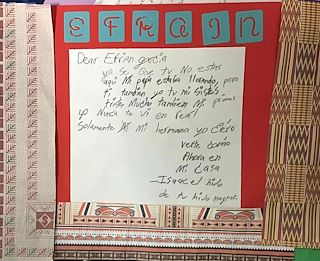 EFRAIN
Dear Efrian garcia
ya se que tu No estas
aqui Mi papa estaba llorando, para
ti tambien yo tu mi Sistas
triste Mucho tambien Mi primos
yo Nunca te vi en real
Solamente Mi hermana yo cero
verte como
Ahora en
Mi casa
-Isaac el hijo
de tu hijo mayor.